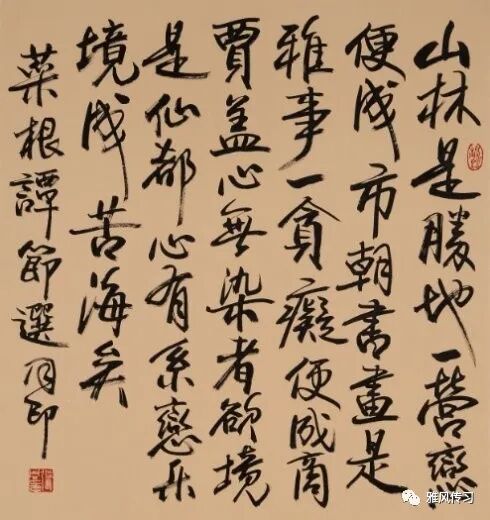 山林是勝地一營戀
便成市朝書畫是
雅事一貪癡便成商
賈蓋心無染者欲境
是仙都心有系戀乐
境成苦海矣
菜根譚節選同印
雅风传习